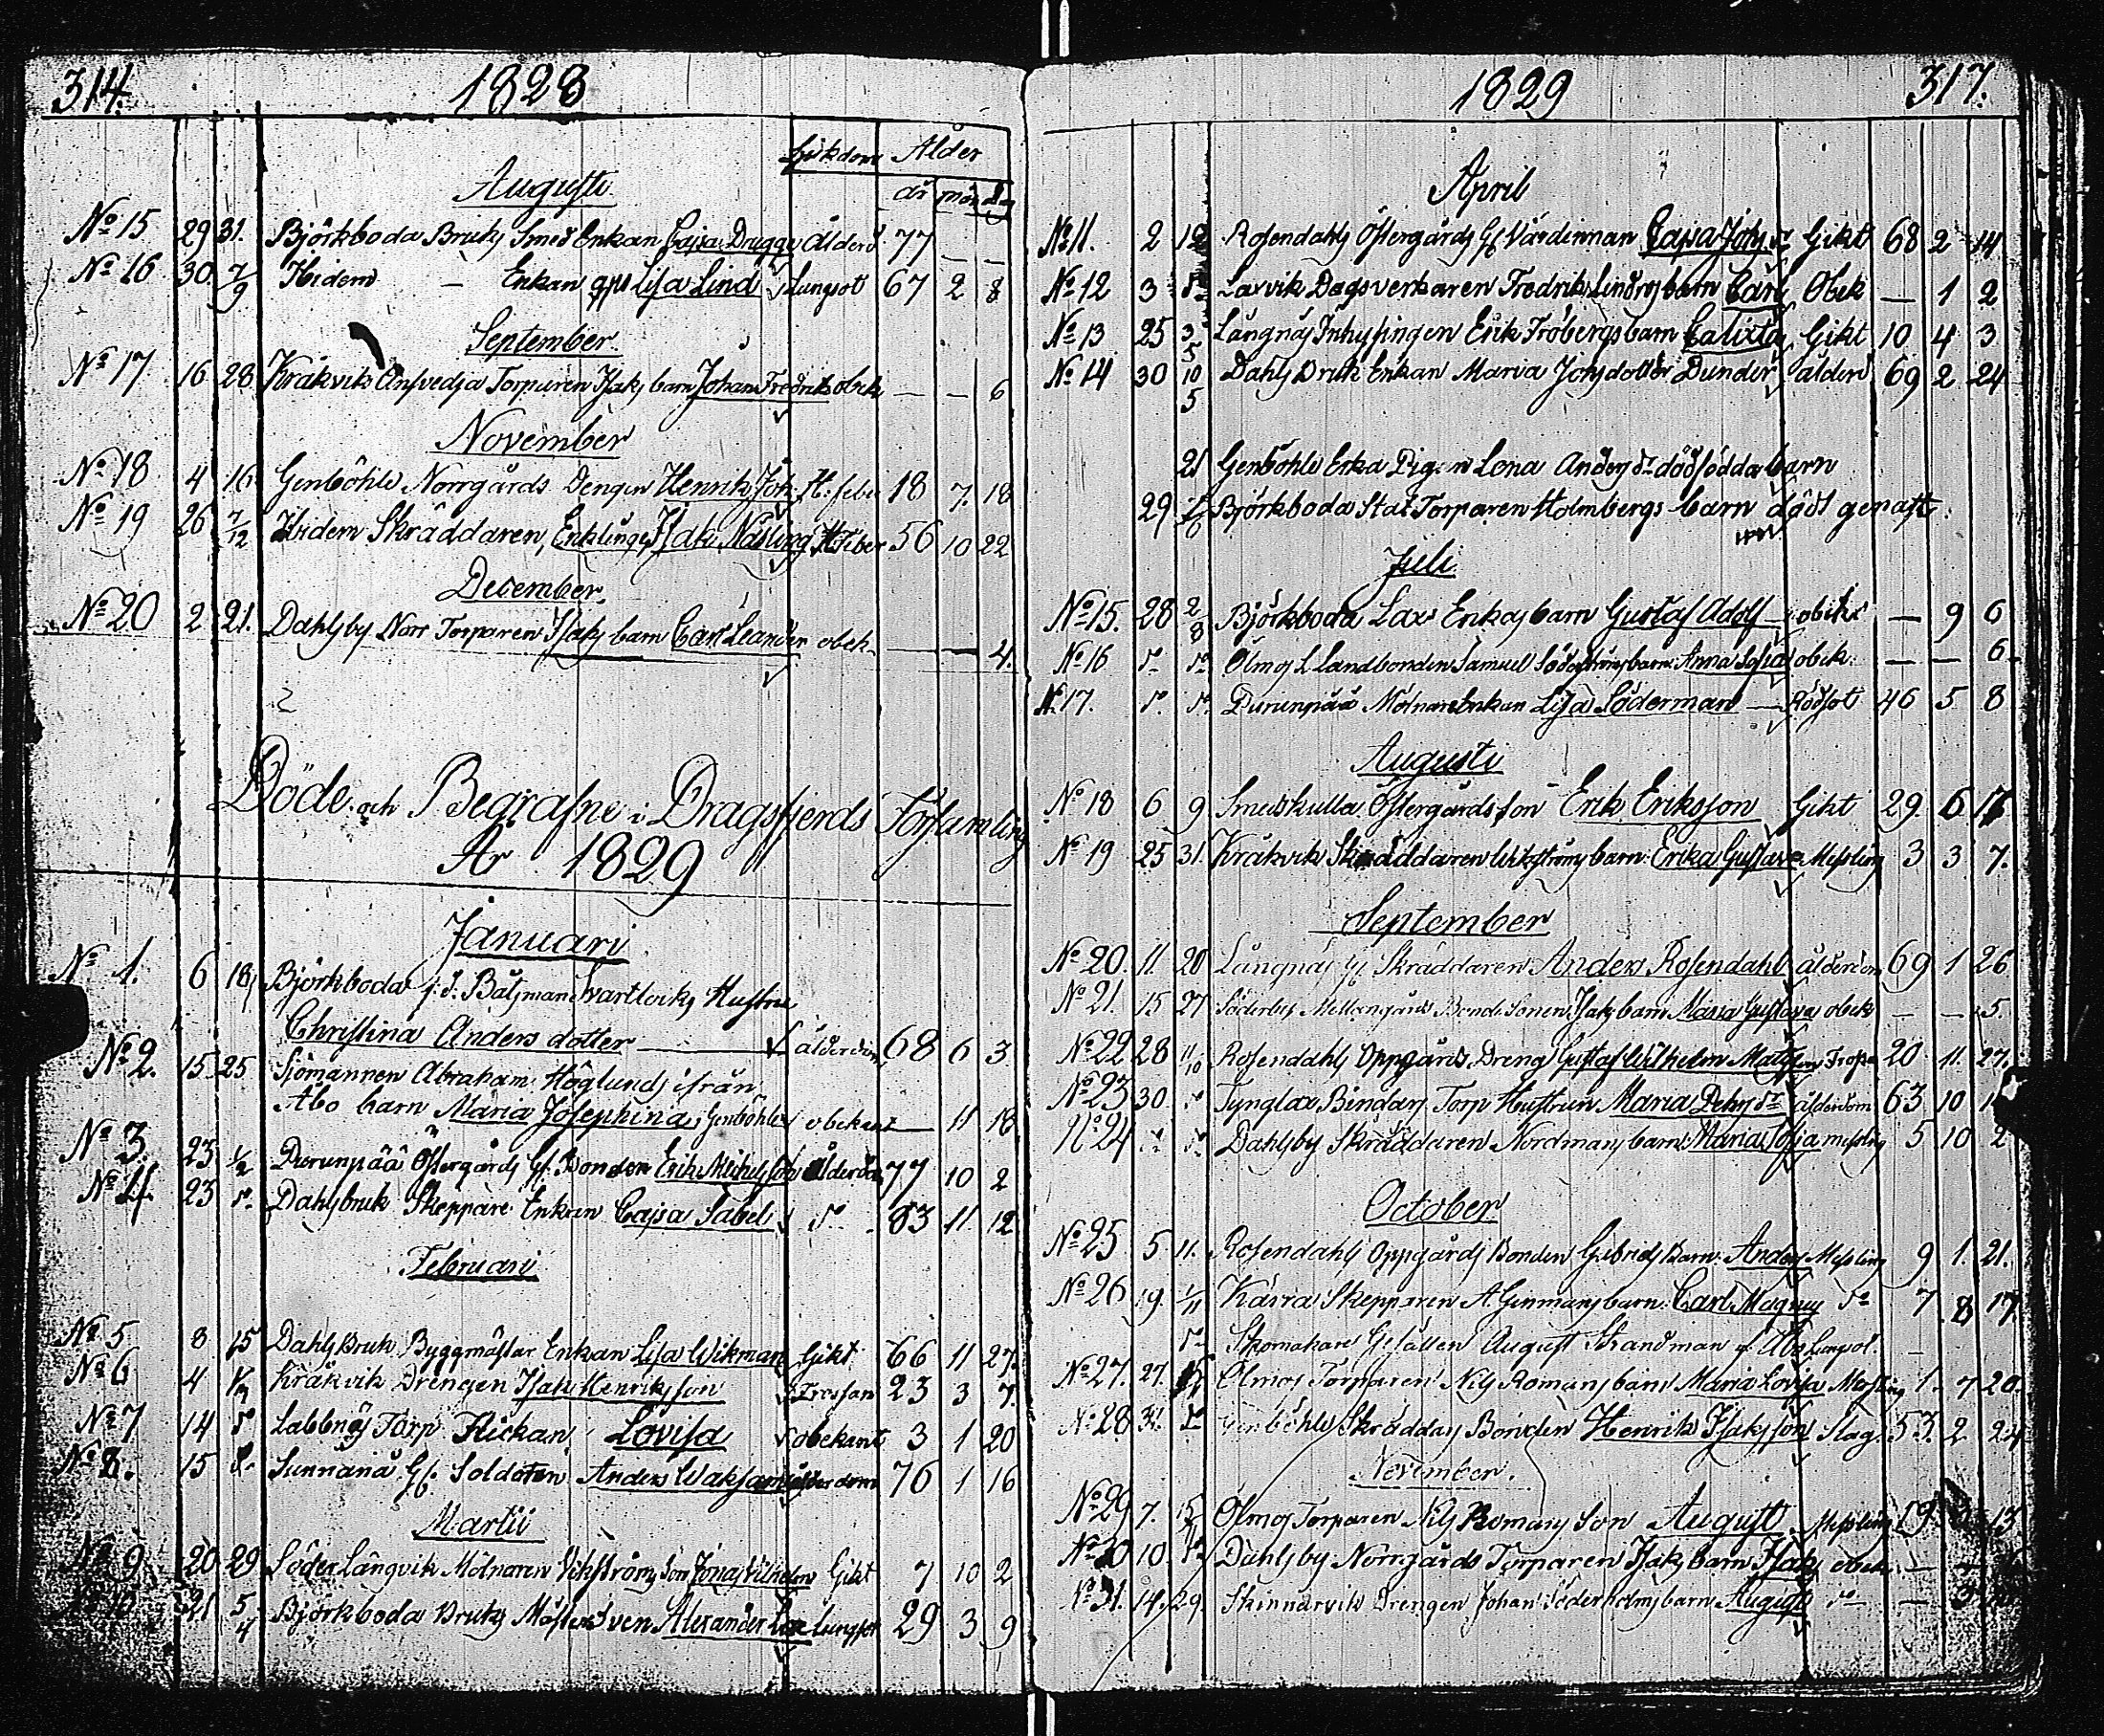 314.
1828
Sjukdom Ålder
år mån dag
Augusti
No 15 29 31. Björkboda Bruks Smed Enkan Cajsa Drugge ålderd 77 — —
No 16 30 7/9 Ibidem — Enkan Lisa Lind Lungsot 67 2 8
September
No 17 16 28 Kråkvik Torparen Isaks barn Johan Fredrik obek — — 6
November
No 18 4 16 Genböhle Norrgårds Dengen Henrik Joh: H: feber 18 7. 18
No 19 26 7/12 Ibidem Skräddaren, Enklingen Isak Nåsling H Feber 56 10 22
December.
No 20 2 21. Dahlsby Norr Torparen Isaks barn Carl Leander obek — — 4.
Döde och Begrafne i Dragsfjerds Församling
År 1829
Januari
No 1. 6 18 Björkboda f: d. Båtsman Svartlocks Hustru
Christina Anders dotter — ålderdom 68 6 3
No 2. 15 25 Sjömannen Abraham Höglunds ifrån
Åbo barn Maria Josephina, Genböhle obekant — 11 18
No 3. 23 1/2 Durunpää Östergårds Gl. Bonden Erik Michelsson ålderdom 77 10 2
No 4. 23 do Dahlsbruk Skeppare Enkan Cajsa Sabel do 83 11. 12
Februari
No 5 8 15 Dahls Bruk Byggmästar Enkan Lisa Wikman Gikt 66 11 27.
No 6 4 Kråkvik Drengen Isak Henriksson 23 3 7.
No 7 14 do Labbnäs Torp Flickan Lovisa obekant 3 1 20
No 8. 15 do Sunnanå Gl. Soldaten Anders ålderdom 76 1 16
Martii
No 9 20 29 Söder Långvik Mölnaren Vikströms Son Jonas Vilhelm Gikt 7 10 2
No 10 21 5/4 Björkboda Bruks Mäster Sven Alexander Lax Lungsot 29 3 9
1829
317.
April
No 11. 2 12 Rosendahls Östergårds Gl Värdinnan Cajsa Johs dr Gikt 68 2 14
No 12 3 do Laxvik Dagsverkaren Fredrik Lindroos barn Carl Obek — 1 2
No 13 25 3/5 Långnäs Inhysingen Erik Fröbergs barn Calixta Gikt 10 4 3
No 14 30 10/5 Dahls Bruk Enkan Maria Johsdotter Dunder ålderd 69 2 24
21 Genböhle Enka Pigan Lena Anders dr dödfödda barn
29 Björkboda Stat Torparen Holmbergs barn dödt genast
Juli
No 15. 28 2/8 Björkboda Lax Erikas barn Gustaf Adolf — obekt — 9 6
No 16 do do Ölmos L Landbonden Samuel Söderströms barn Anna Sofia obek: — — 6
N. 17. do do Durunpää Mölnare Enkan Lisa Söderman — Rödsot 46 5 8
Augusti
No 18 6 9 Smedskulla Östergårds son Erik Eriksson Gikt 29. 6 17
No 19 25 31. Kråkvik Skräddaren Wikströms barn Erika Gustava Messling 3 3 7.
September
No 20. 11. 20 Långnäs Gl. Skräddaren Anders Rosendahl ålderdom 69 1 26
No 21. 15 27 Söderby Mellangårds Bonde Sonen Isaks barn Maria Gustava obek — — 5.
No 22 28 11/10 Rosendahls Oppgårds Dreng Gustaf Wilhelm Matsson 20 11. 27.
No 23 30. do Tynglax Bindars Torp Hustrun Maria dr ålderdom 63 10
No 24 do do Dahlsby Skräddaren Nordmans barn Maria Sofia messling 5 10 2
October
No 25 5 11. Rosendahls Oppgårds Bonden Gabriels Barn Anders Messling 9 1. 21.
No 26 19. 1/11 Kärra Skepparen A. Ginmans barn Carl Magnus do 7 8 17
do Skomakare Gesällen August Strandman fr. Åbo Lungsot.
No 27. 27. Ölmos Torparen Nils Romans barn Maria Lovisa Messling 1. 7 20.
No 28 31. do Genböhle Skräddars Bonden Henrik Isaksson Slag 53. 2 24
November.
No 29 7. Ölmos Torparen Nils Romans Son August Messling 13
No 30 10. do Dahlsby Norrgårds Torparen Isaks barn Isak obek —
No 31. 14. 29. Skinnarvik Drengen Johan Söderholms barn August do —